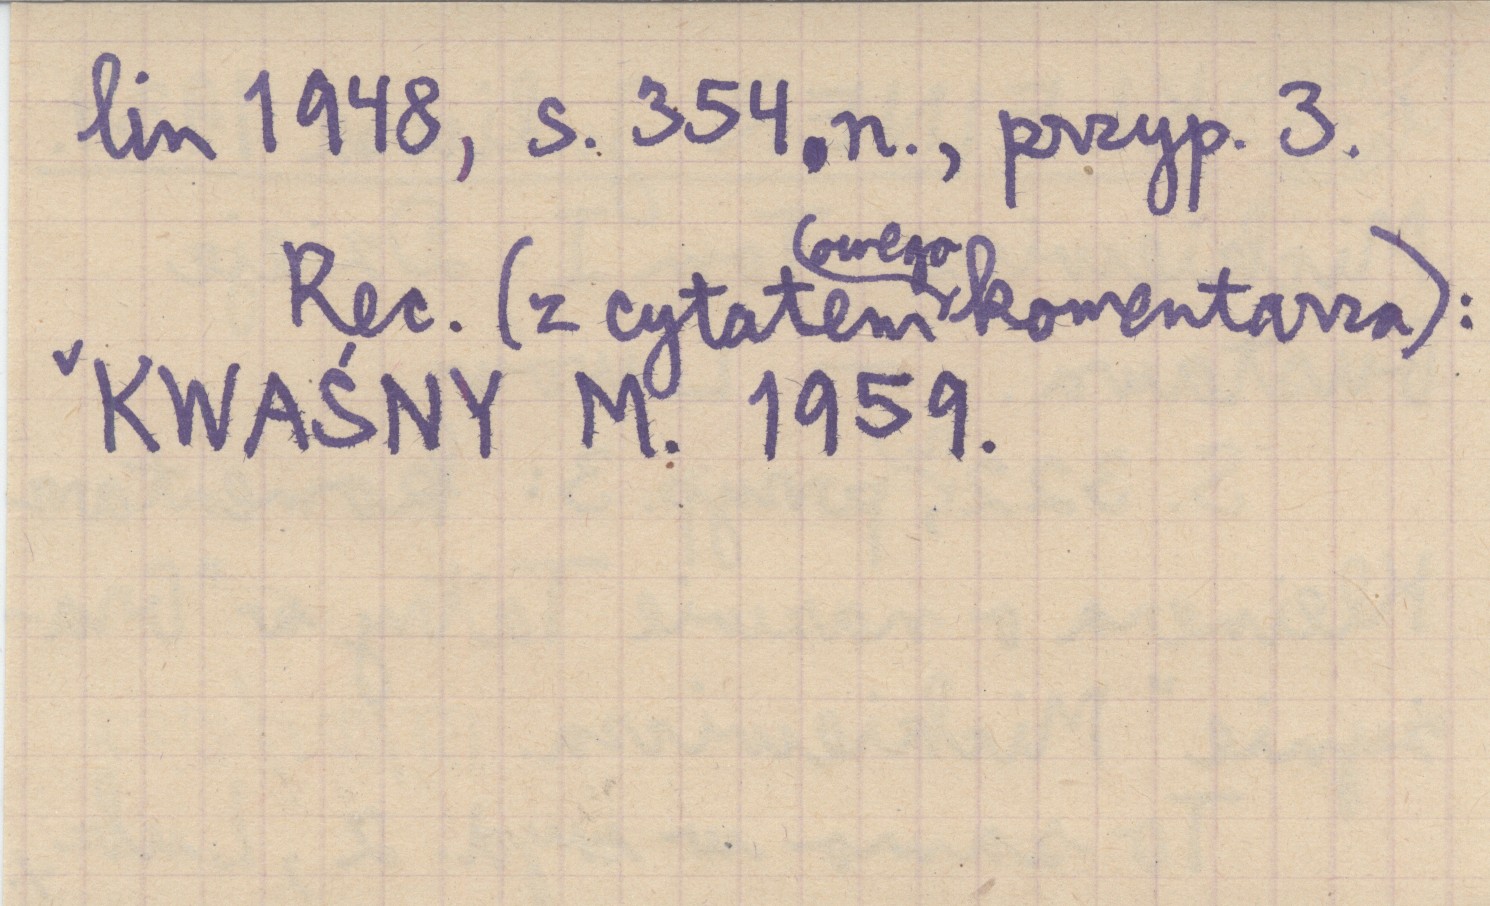 lin 1948, s. 354.n., przyp. 3.
Rec. (z cytatem owego komentarza):
KWAŚNY M. 1959.